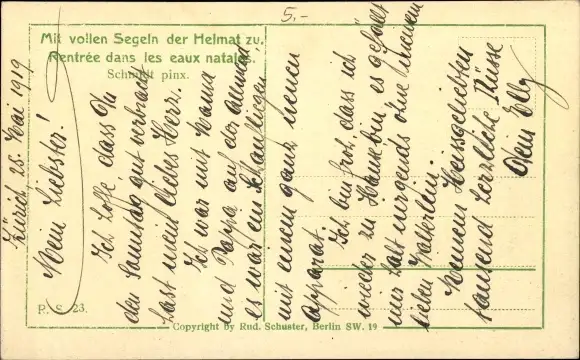 5.-
Mit vollen Segeln der Heimat zu.
Rentrée dans les eaux natales.
Schmidt pinx.
Zürich 25. Mai 1919
Mein Liebster!
Ich hoffe dass Du
den Samstag gut verbracht
hast mein liebes Herz.
Ich war mit Mama
und Pappa auf der Allmend
es war ein Schaufliegen
mit einem ganz neuen
Apparat.
Ich bin froh, dass ich
wieder zu Hause bin es gefällt
mir halt nirgends ohne meinem
lieben
Meinem Heissgeliebten
tausend herzliche Küsse
Dein Elly
P. S. 23.
Copyright by Rud. Schuster, Berlin SW. 19